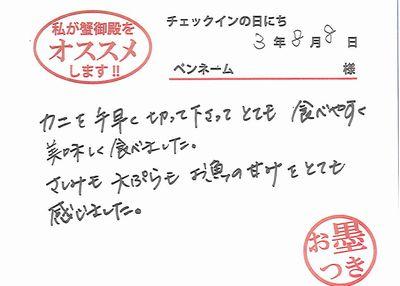 私が蟹御殿を
オススメ
します!!
チェックインの日にち
3 年 8 月 8 日
ペンネーム 様
カニを手早く切って下さってとても食べやすく
美味しく食べました。
さしみも天ぷらもお魚の甘みをとても
感じました。
お墨
つき